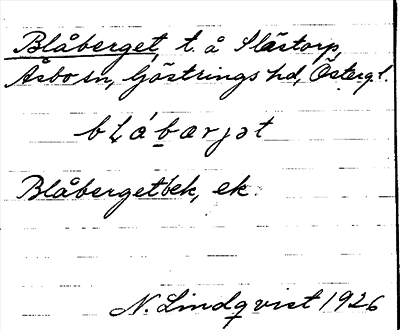 Blåberget, t. å Slästorp,
Åsbo sn, Göstrings hd, Östergl.
bl̥áb̠ærjət
Blåbergetbek, ek.
N. Lindqvist 1926